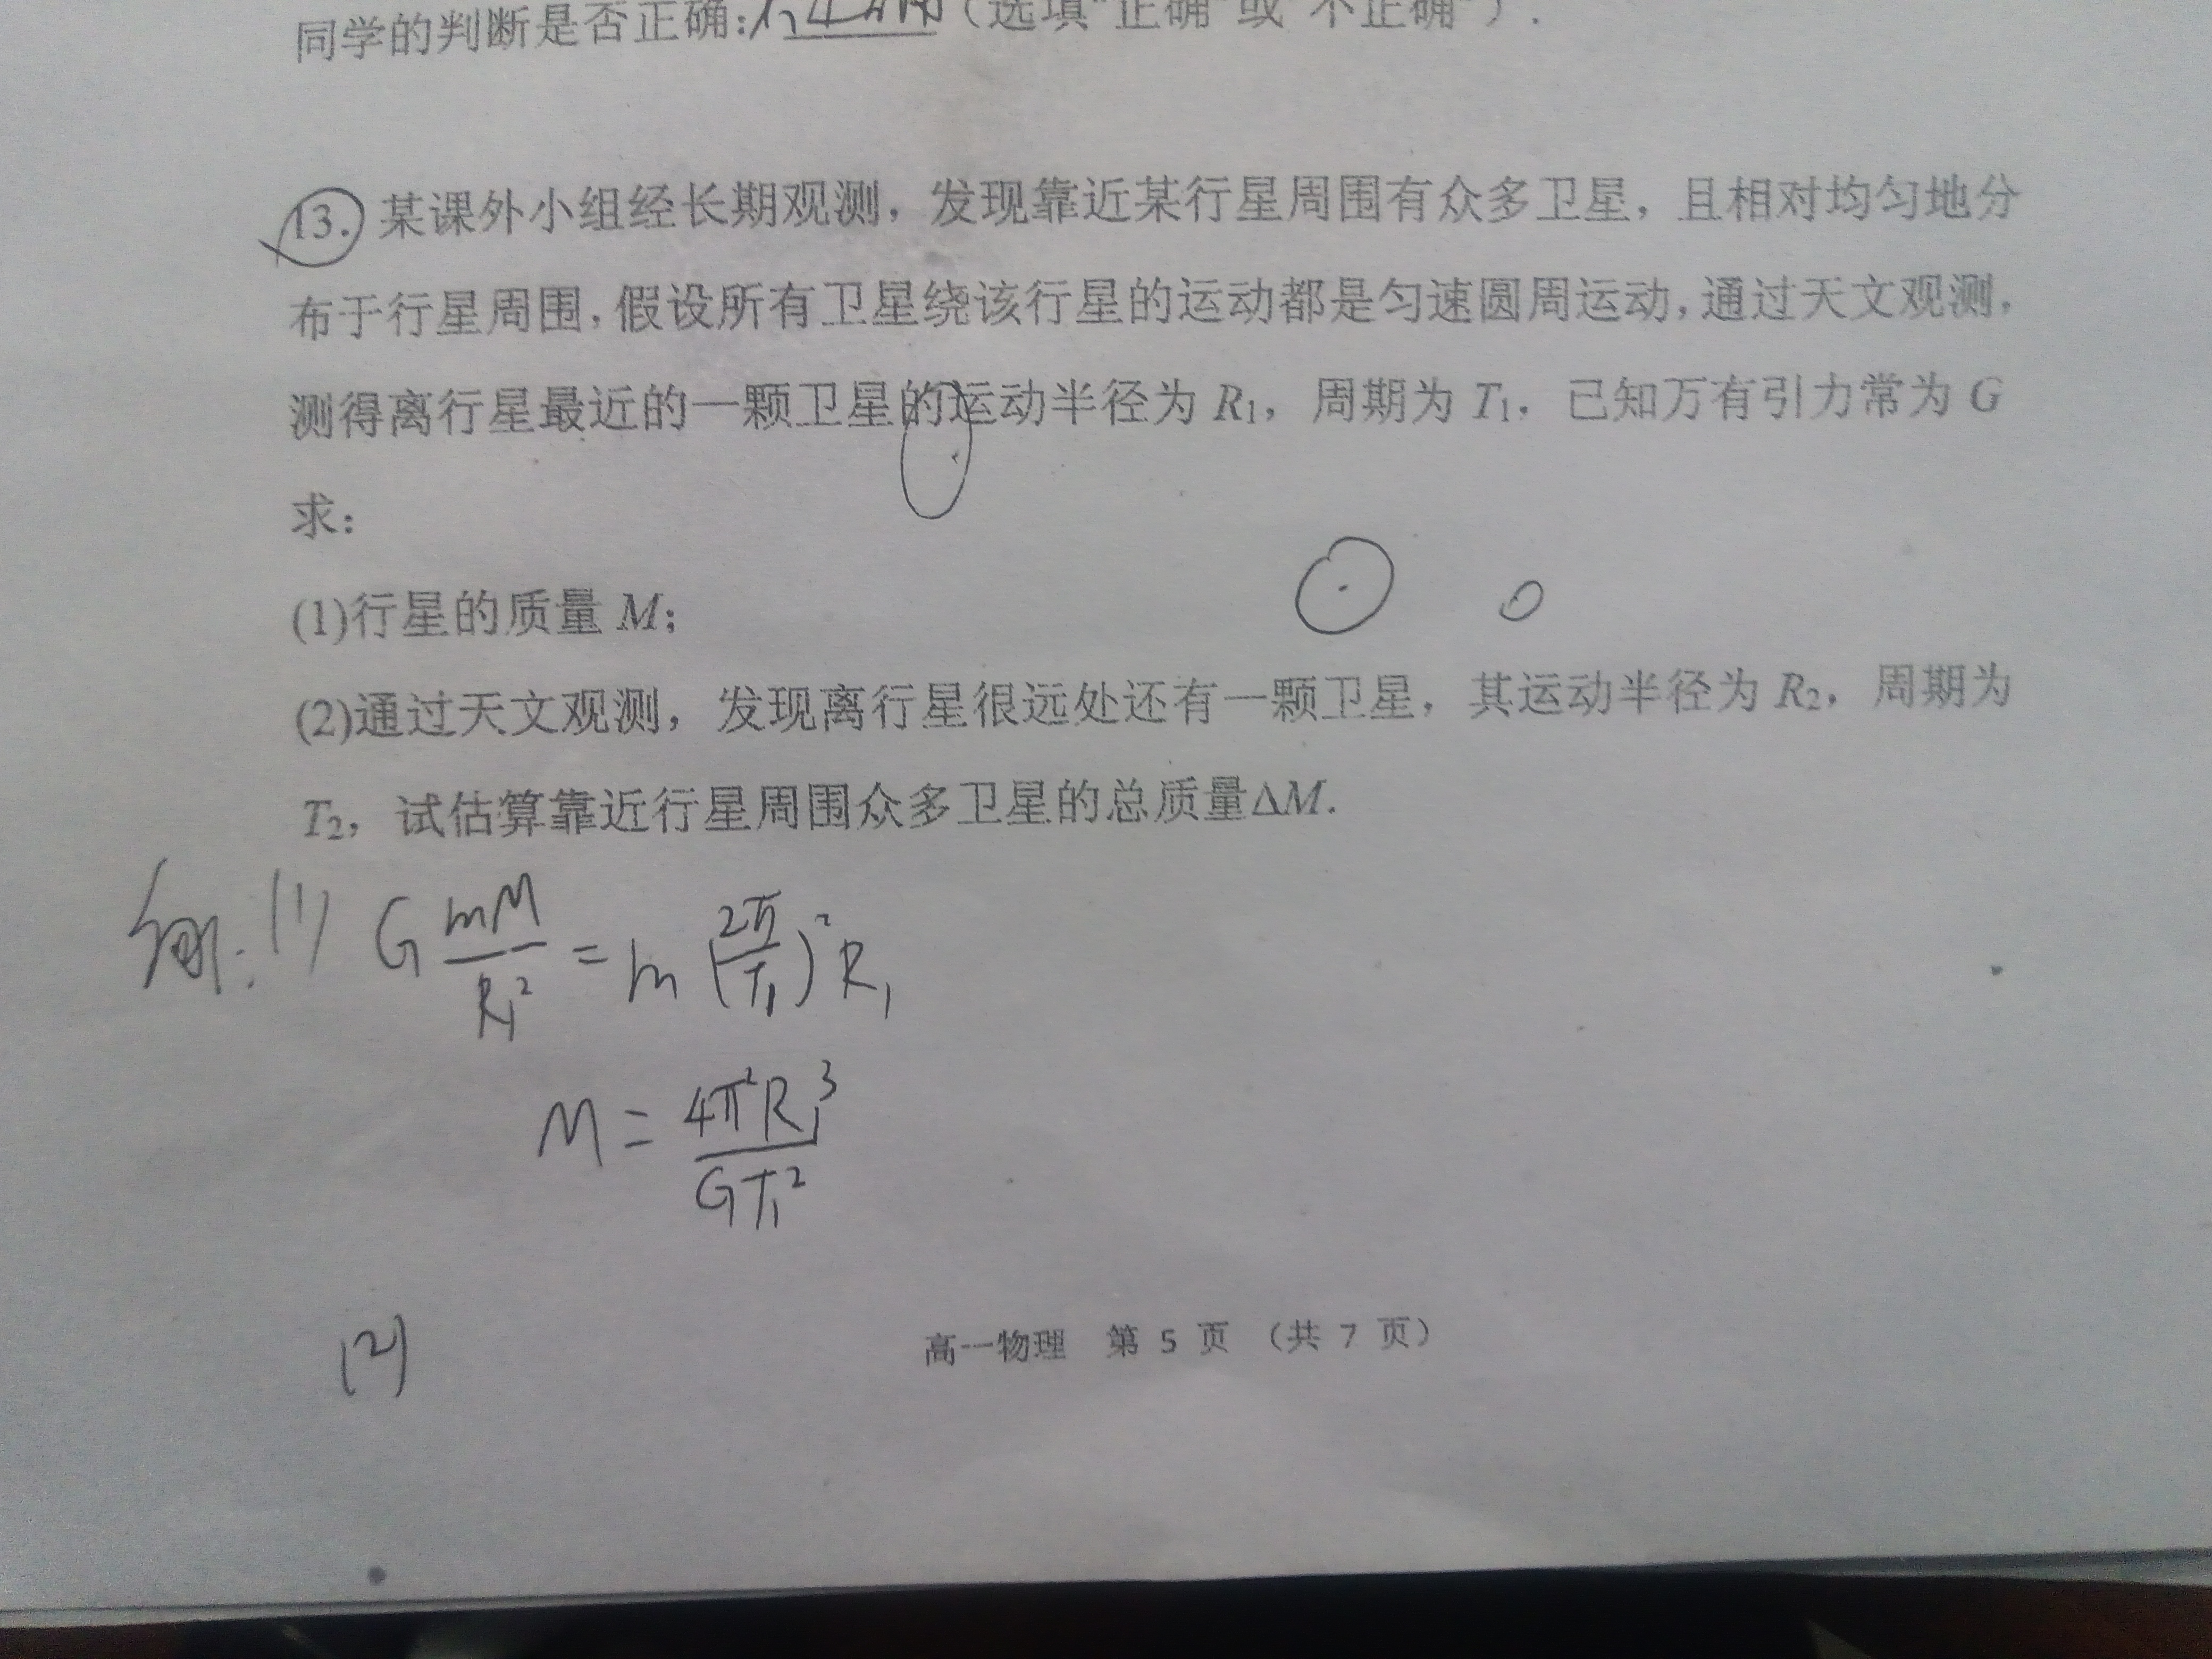 同学的判断是否正确:不正确(选填"正确"或"不正确").
13. 某课外小组经长期观测，发现靠近某行星周围有众多卫星，且相对均匀地分
布于行星周围，假设所有卫星绕该行星的运动都是匀速圆周运动，通过天文观测，
测得离行星最近的一颗卫星的运动半径为 R₁，周期为 T₁．已知万有引力常为 G
求：
(1)行星的质量 M；
(2)通过天文观测，发现离行星很远处还有一颗卫星，其运动半径为 R₂，周期为
T₂，试估算靠近行星周围众多卫星的总质量ΔM.
(1) G mM/R₁² = m (2π/T₁)² R₁
M = 4π²R₁³/GT₁²
(2)
高一物理 第 5 页 （共 7 页）